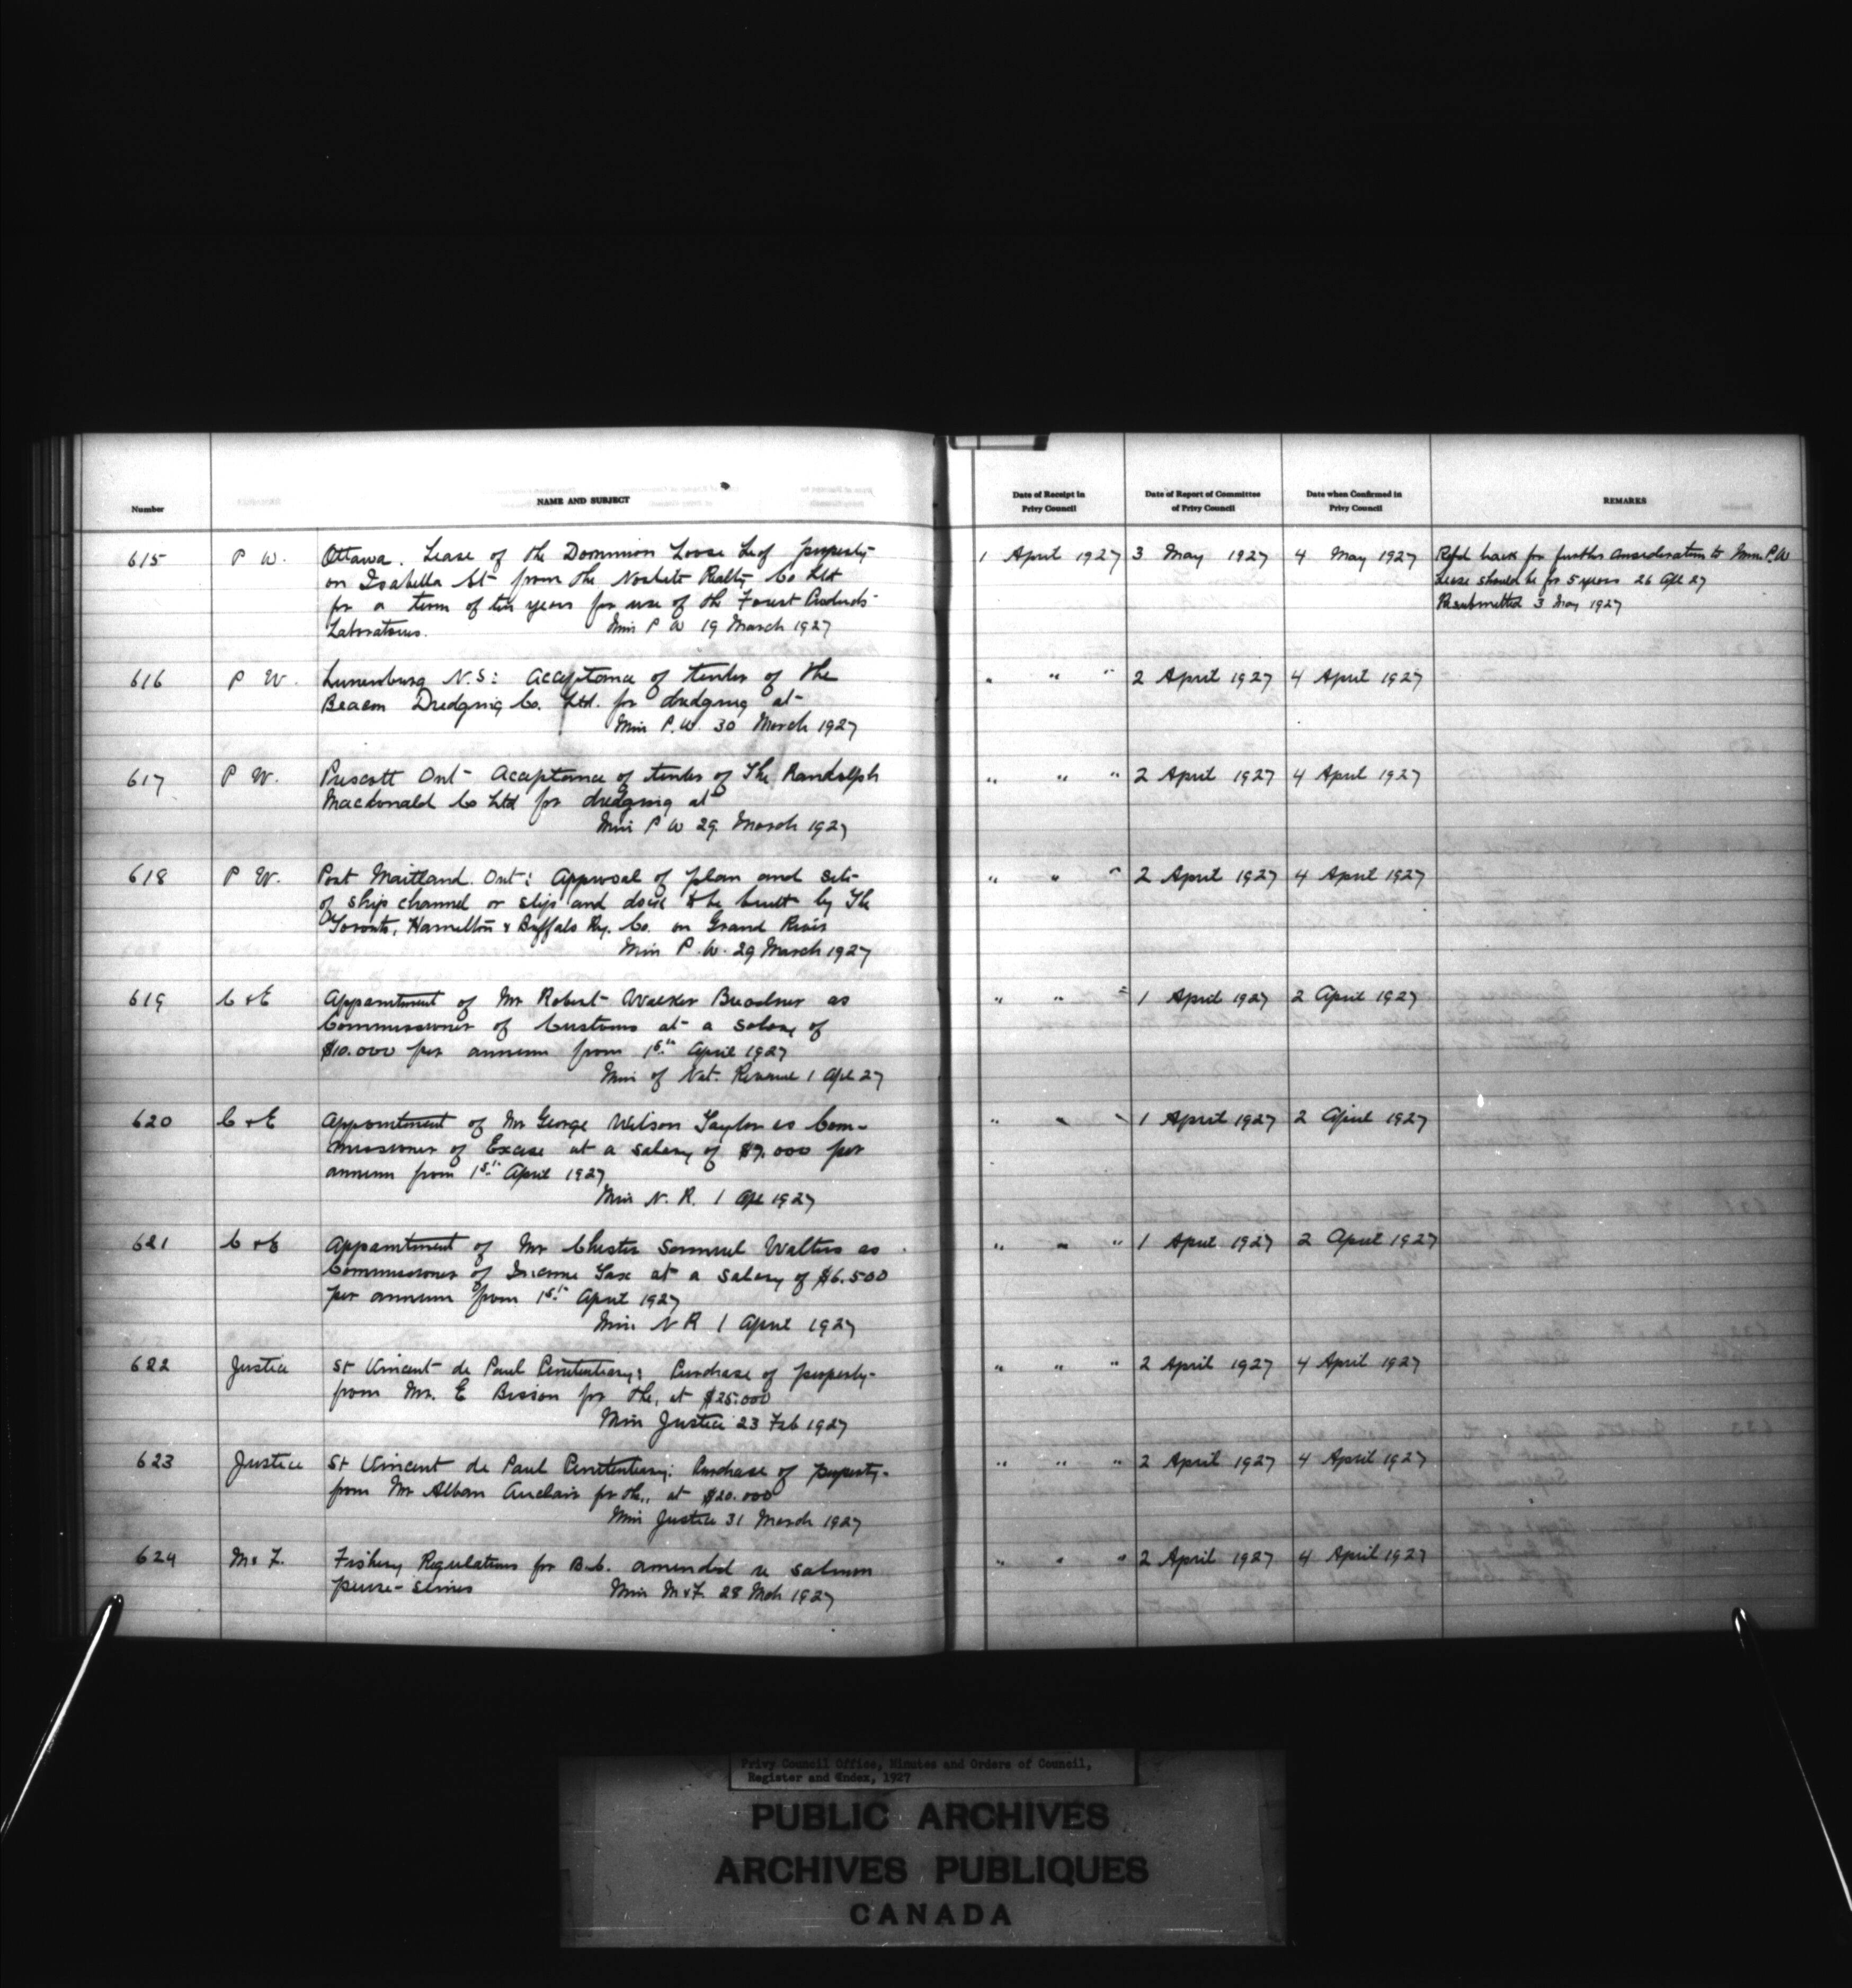 Number
NAME AND SUBJECT
Date of Receipt in Privy Council
Date of Report of Committee of Privy Council
Date when Confirmed in Privy Council
REMARKS
615 P W. Ottawa. Lease of the Dominion Loose Leaf property 1 April 1927 3 May 1927 4 May 1927 Refd back for further consideration to Min. P.W
on Isabella St from the Realty Co Ltd Lease should be for 5 years 26 Apl 27
for a term of ten years for use of the Forest Products Resubmitted 3 May 1927
Laboratories. Min P W 19 March 1927
616 P W. Lunenburg N.S: Acceptance of tender of the " " " 2 April 1927 4 April 1927
Beacon Dredging Co. Ltd. for dredging at
Min P.W. 30 March 1927
617 P W. Prescott Ont Acceptance of tender of The Randolph " " " 2 April 1927 4 April 1927
Macdonald Co Ltd for dredging at
Min P W 29 March 1927
618 P W. Port Maitland. Ont: Approval of plan and site " " " 2 April 1927 4 April 1927
of ship channel or slip and dock to be built by The
Toronto, Hamilton & Buffalo Ry. Co. on Grand River
Min P.W. 29 March 1927
619 C & E Appointment of Mr Robert Walker Breadner as " " " 1 April 1927 2 April 1927
Commissioner of Customs at a salary of
$10.000 per annum from 1st April 1927
Min of Nat. Revenue 1 Apl 27
620 C & E Appointment of Mr George Wilson Taylor as Com- " " " 1 April 1927 2 April 1927
missioner of Excise at a salary of $7.000 per
annum from 1st April 1927
Min N. R. 1 Apl 1927
621 C & E Appointment of Mr Chester Samuel Walters as " " " 1 April 1927 2 April 1927
Commissioner of Income Tax at a salary of $6.500
per annum from 1st April 1927
Min N R 1 April 1927
622 Justice St Vincent de Paul Penitentiary: Purchase of property " " " 2 April 1927 4 April 1927
from Mr. E Bisson for the, at $25.000
Min Justice 23 Feb 1927
623 Justice St Vincent de Paul Penitentiary: Purchase of property " " " 2 April 1927 4 April 1927
from Mr Alban Auclair for the, at $20.000
Min Justice 31 March 1927
624 M & F. Fishery Regulations for B.C. amended re salmon " " " 2 April 1927 4 April 1927
purse-seines Min M & F. 28 Mch 1927
Privy Council Office, Minutes and Orders of Council,
Register and Index, 1927
PUBLIC ARCHIVES
ARCHIVES PUBLIQUES
CANADA